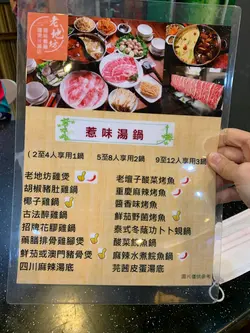 老地坊
惹味湯鍋
(2至4人享用1鍋 5至8人享用2鍋 9至12人享用3鍋)
老地坊雞煲 老壇子酸菜烤魚
胡椒豬肚雞鍋 重慶麻辣烤魚
椰子雞鍋 醬香味烤魚
古法醉雞鍋 鮮茄野菌烤魚
招牌花膠雞鍋 泰式冬蔭功卜卜蜆鍋
藥膳排骨雞腳煲 酸菜魚鍋
鮮茄或澳門豬骨煲 麻辣水煮魚鍋
四川麻辣湯底 芫茜皮蛋湯底
圖片僅供參考